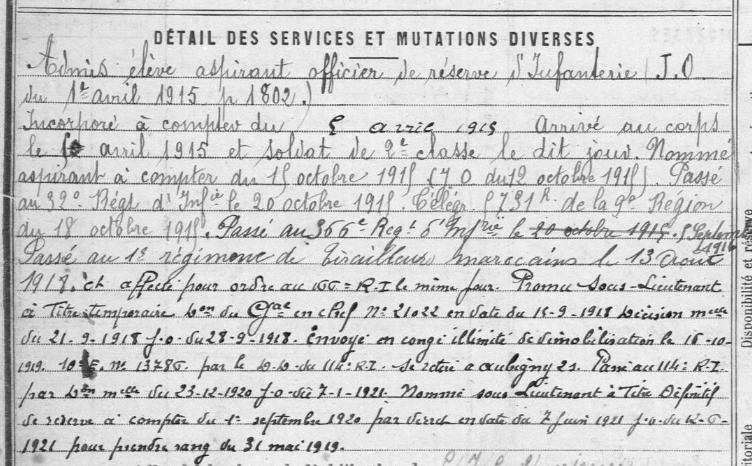 DÉTAIL DES SERVICES ET MUTATIONS DIVERSES
Admis élève aspirant officier de réserve d'Infanterie (J.O.
du 1er avril 1915 p 1802.)
Incorporé à compter du 5 avril 1915 Arrivé au corps
le avril 1915 et soldat de 2e classe le dit jour. Nommé
aspirant à compter du 15 octobre 1915 (J O du 12 octobre 1915). Passé
au 32e Régt d'Infie le 20 octobre 1915. Télégr 5731 R de la 9e Région
du 18 octobre 1915. Passé au 366e Regt d'Infrie le 20 octobre 1915. 5 Septembre
1916
Passé au 1er régiment de tirailleurs marocains le 13 Août
1918. et affecté pour ordre au R.I le même jour. Promu Sous-Lieutenant
à Titre temporaire Don du Gal en chef No 21022 en date du 15-9-1918 Décision melle
du 21-9-1918 J.O. du 28-9-1918. Envoyé en congé illimité de démobilisation le 16-10-
1919. 10e E. no 13786. par le D.D. du 114e R.I. se retire à Aubigny 2s. Passé au 114e R.I.
par Don melle du 23-12-1920 J.O du 7-1-1921. Nommé sous Lieutenant à Titre Définitif
de réserve à compter du 1er septembre 1920 par décret en date du 7 Juin 1921 J.O. du 12-6-
1921 pour prendre rang du 31 mai 1919.
Disponibilité et réserve